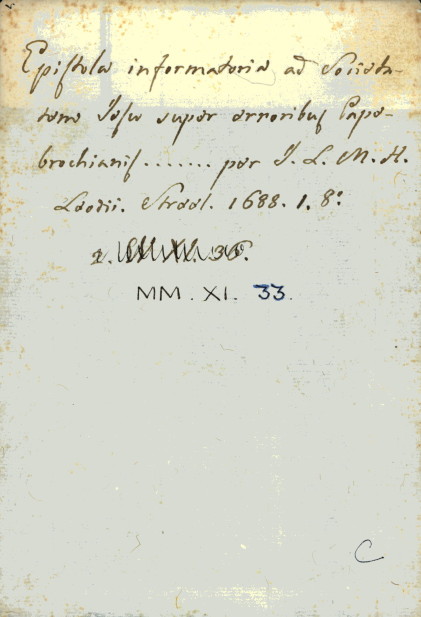 Epistola informatoria ad Societa-
tem Jesu super erroribus Pape-
brochianis ....... per J. L. M. H.
Leodii. Streel. 1688. 1. 8º
MM. XI. 33.
C